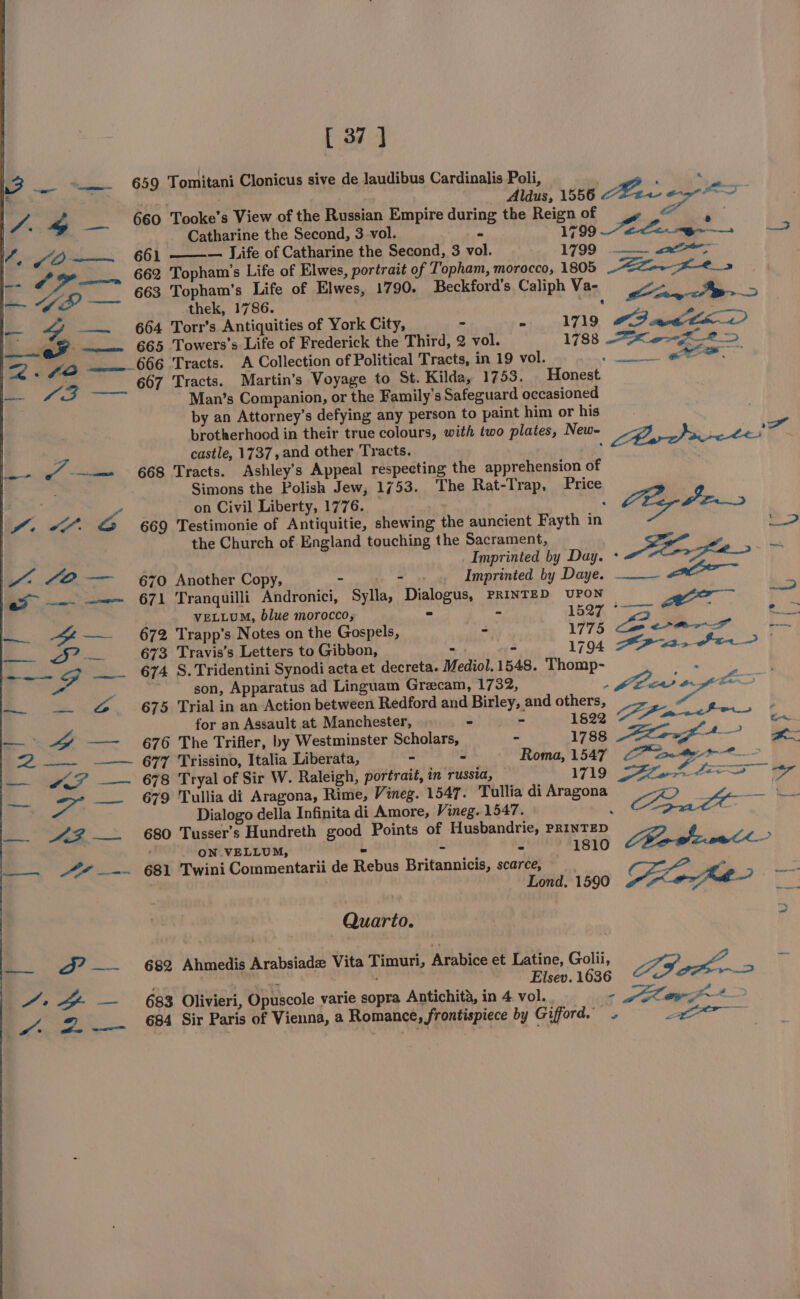 [ 37 ]
3 — — 659 Tomitani Clonicus sive de laudibus Cardinalis Poli,
Aldus, 1556
1. 4 — 660 Tooke's View of the Russian Empire during the Reign of
Catharine the Second, 3 vol. - 1799
1. 10 — 661 ——— Life of Catharine the Second, 3 vol. 1799
662 Topham's Life of Elwes, portrait of Topham, morocco, 1805
663 Topham's Life of Elwes, 1790. Beckford's Caliph Va-
thek, 1786.
664 Torr's Antiquities of York City, - - 1719
665 Towers's Life of Frederick the Third, 2 vol. 1788
2. 10 — 666 Tracts. A Collection of Political Tracts, in 19 vol.
— 13 — 667 Tracts. Martin's Voyage to St. Kilda, 1753. Honest
Man's Companion, or the Family's Safeguard occasioned
by an Attorney's defying any person to paint him or his
brotherhood in their true colours, with two plates, New-
castle, 1737, and other Tracts.
668 Tracts. Ashley's Appeal respecting the apprehension of
Simons the Polish Jew, 1753. The Rat-Trap, Price
on Civil Liberty, 1776.
669 Testimonie of Antiquitie, shewing the auncient Fayth in
the Church of England touching the Sacrament,
Imprinted by Day.
1. 10 — 670 Another Copy, - - Imprinted by Daye.
671 Tranquilli Andronici, Sylla, Dialogus, PRINTED UPON
VELLUM, blue morocco, - - 1527
— 4 — 672 Trapp's Notes on the Gospels, - 1775
673 Travis's Letters to Gibbon, - - 1794
674 S. Tridentini Synodi acta et decreta. Mediol. 1548. Thomp-
son, Apparatus ad Linguam Græcam, 1732, -
— — 6 675 Trial in an Action between Redford and Birley, and others,
for an Assault at Manchester, - - 1822
— 4 — 676 The Trifler, by Westminster Scholars, - 1788
2 — — 677 Trissino, Italia Liberata, - - Roma, 1547
678 Tryal of Sir W. Raleigh, portrait, in russia, 1719
— 7 — 679 Tullia di Aragona, Rime, Vineg. 1547. Tullia di Aragona
Dialogo della Infinita di Amore, Vineg. 1547.
— 13 — 680 Tusser's Hundreth good Points of Husbandrie, PRINTED
ON VELLUM, - - - 1810
— 11 — 681 Twini Commentarii de Rebus Britannicis, scarce,
Lond. 1590
Quarto.
682 Ahmedis Arabsiadæ Vita Timuri, Arabice et Latine, Golii,
Elsev. 1636
1. 4 — 683 Olivieri, Opuscole varie sopra Antichità, in 4 vol. -
1. 2 — 684 Sir Paris of Vienna, a Romance, frontispiece by Gifford. -